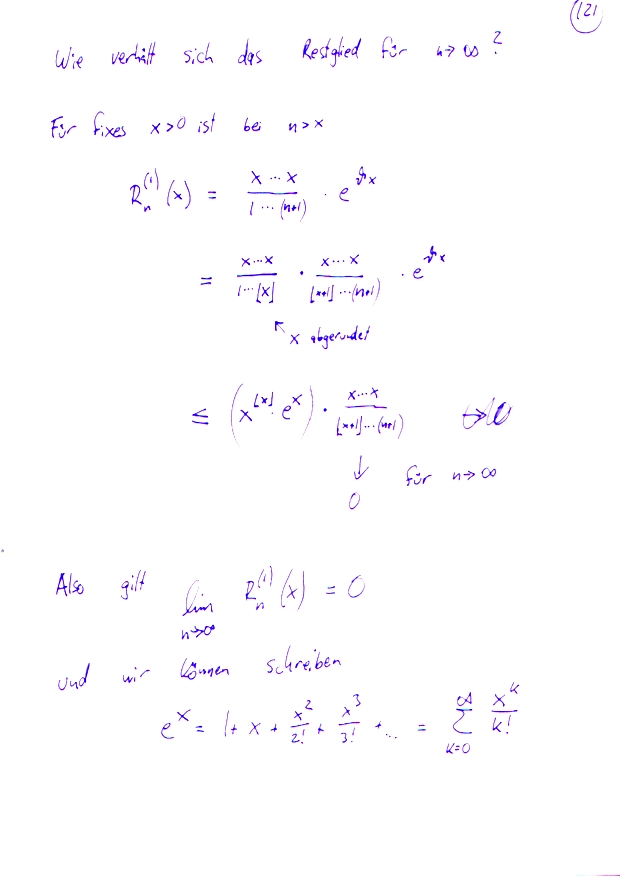 121
Wie verhält sich das Restglied für n→∞?
Für fixes x>0 ist bei n>x
R_n^(1)(x) = (x ⋯ x)/(1 ⋯ (n+1)) · e^(ϑx)
= (x⋯x)/(1⋯⌊x⌋) · (x⋯x)/(⌊x+1⌋⋯(n+1)) · e^(ϑx)
↖ x abgerundet
≤ (x^⌊x⌋ · e^x) · (x⋯x)/(⌊x+1⌋⋯(n+1))
↓ für n→∞
0
Also gilt lim n→∞ R_n^(1)(x) = 0
und wir können schreiben
e^x = 1 + x + x^2/2! + x^3/3! + ... = ∑_{k=0}^∞ x^k/k!